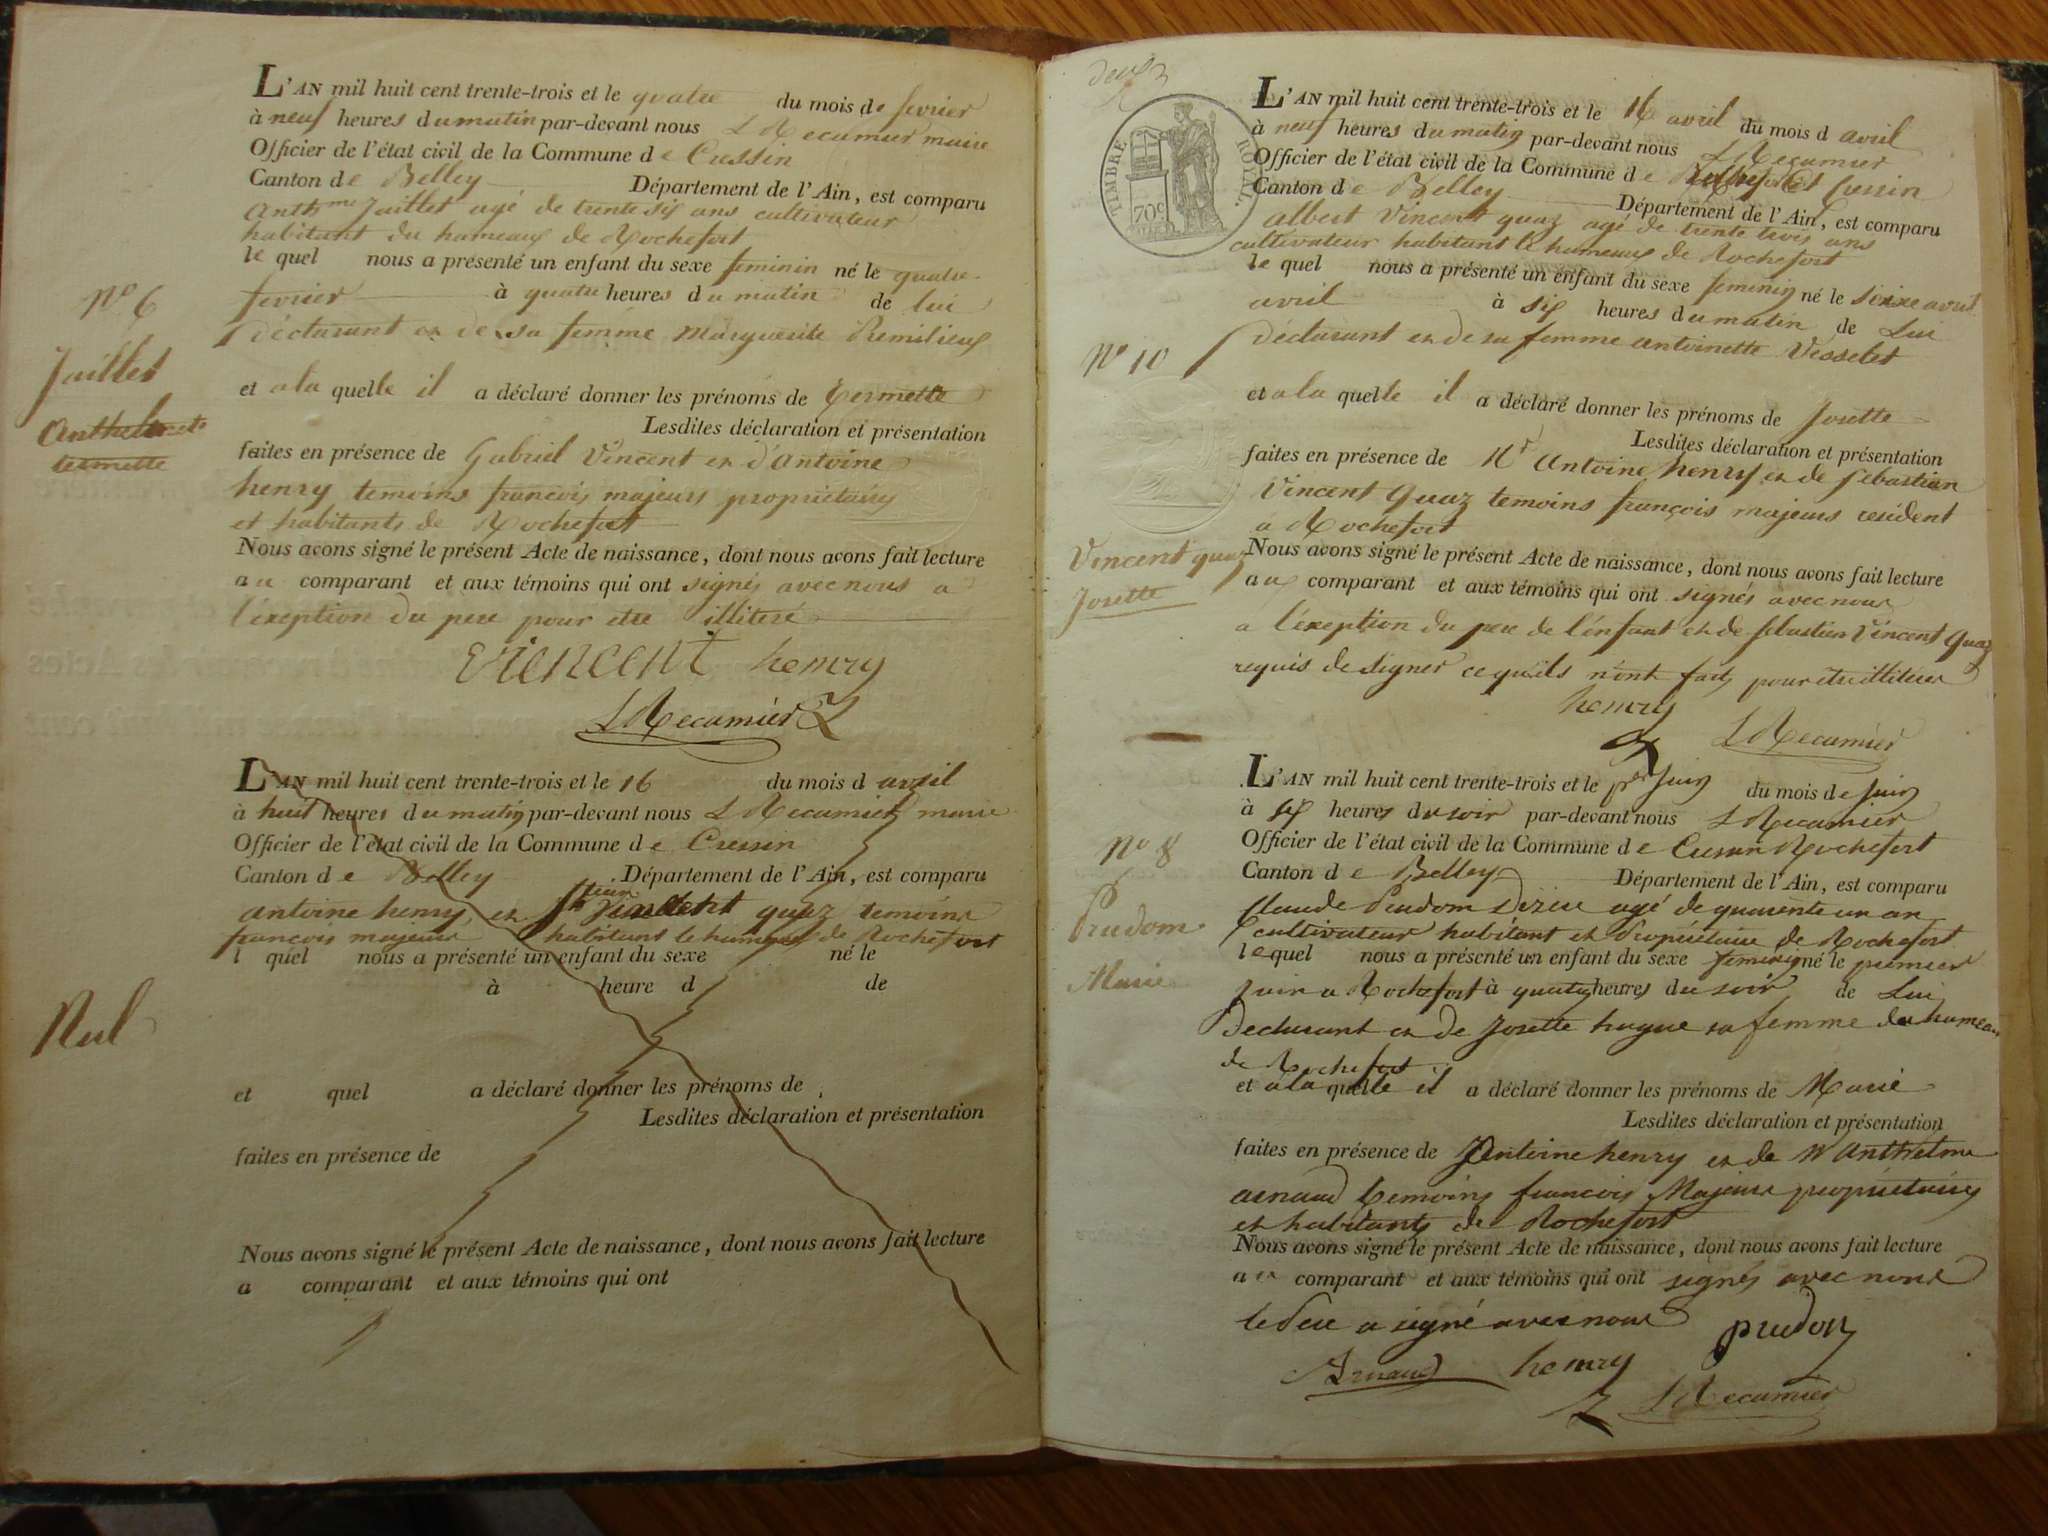 L'AN mil huit cent trente-trois et le quatre du mois de fevrier
à neuf heures du matin par-devant nous L Recamier maire
Officier de l'état civil de la Commune de Cressin
Canton de Belley Département de l'Ain, est comparu
Anthme Juillet agé de trente six ans cultivateur
habitant du hameaux de Rochefort
le quel nous a présenté un enfant du sexe feminin né le quatre
fevrier à quatre heures du matin de lui
déclarant et de sa femme Marguerite Premilieux
et a la quelle il a déclaré donner les prénoms de
Lesdites déclaration et présentation
faites en présence de Gabriel Vincent et d'Antoine
henry temoins francois majeurs propriétaires
et habitants de Rochefort
Nous avons signé le présent Acte de naissance, dont nous avons fait lecture
au comparant et aux témoins qui ont signés avec nous a
l'exeption du pere pour etre illiteré
Viencent henry
L Recamier
N° 6
Juillet
termette
L'AN mil huit cent trente-trois et le 16 du mois d avril
à huit heures du matin par-devant nous L Recamier maire
Officier de l'état civil de la Commune de Cressin
Canton de Belley Département de l'Ain, est comparu
antoine henry et quaz temoins
francois majeurs habitant le hameaux de Rochefort
l quel nous a présenté un enfant du sexe né le
à heure d de
et quel a déclaré donner les prénoms de
Lesdites déclaration et présentation
faites en présence de
Nous avons signé le présent Acte de naissance, dont nous avons fait lecture
a comparant et aux témoins qui ont
Nul
deux
TIMBRE ROYAL.
70c
L'AN mil huit cent trente-trois et le 16 avril du mois d avril
à neuf heures du matin par-devant nous L Recamier
Officier de l'état civil de la Commune de Cressin
Canton de Belley Département de l'Ain, est comparu
albert Vincent quaz agé de trente trois ans
cultivateur habitant le hameaux de Rochefort
le quel nous a présenté un enfant du sexe feminin né le seize avril
avril à six heures du matin de Lui
déclarant et de sa femme antoinette Vesselet
et a la quelle il a déclaré donner les prénoms de Josette
Lesdites déclaration et présentation
faites en présence de Mr Antoine henry et de sebastien
Vincent Quaz temoins françois majeurs resident
a Rochefort
Nous avons signé le présent Acte de naissance, dont nous avons fait lecture
aux comparant et aux témoins qui ont signés avec nous
a l'exeption du pere de l'enfant et de sebastien Vincent Quaz
requis de signer ce qu'ils n'ont fait pour etre illiteré
henry
L Recamier
N° 10
Vincent quaz
Josette
L'AN mil huit cent trente-trois et le per Juin du mois de Juin
à six heures du soir par-devant nous L Recamier
Officier de l'état civil de la Commune de Cressin Rochefort
Canton de Belley Département de l'Ain, est comparu
Claude Prudom agé de quarente un an
cultivateur habitant et propriétaire de Rochefort
lequel nous a présenté un enfant du sexe feminin né le premier
juin a Rochefort à quatre heures du soir de Lui
declarant et de Josette hugue sa femme du hameau
de Rochefort
et a la quelle il a déclaré donner les prénoms de Marie
Lesdites déclaration et présentation
faites en présence de Antoine henry et de Mr Anthelme
arnaud temoins francois Majeurs propriétaires
et habitants de Rochefort
Nous avons signé le présent Acte de naissance, dont nous avons fait lecture
au comparant et aux témoins qui ont signés avec nous
le Pere a signé avec nous prudon
Arnaud henry
L Recamier
N° 8
Prudom
Marie